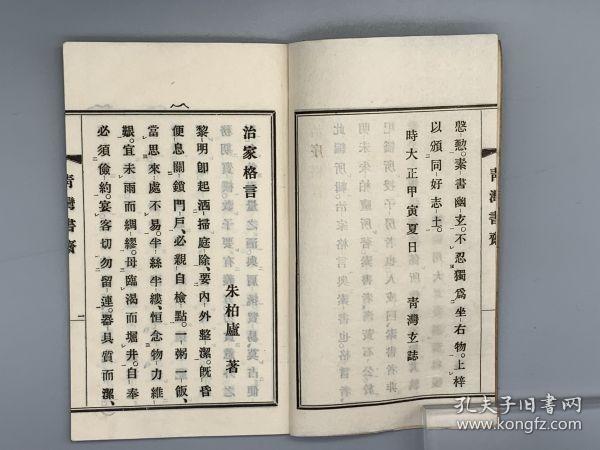 慇懃。素書幽玄。不忍獨爲坐右物。上梓
以頒同好志士。
時大正甲寅夏日
青灣玄誌
青灣書齋
治家格言
朱柏廬著
黎明卽起洒掃庭除、要內外整潔。旣昏
便息關鎖門戶、必親自檢點。一粥一飯、
當思來處不易。半絲半縷、恒念物力維
艱。宜未雨而綢繆。毋臨渴而堀井。自奉
必須儉約。宴客切勿留連。器具質而潔、
青灣書齋
一
孔夫子旧书网
www.kongfz.com